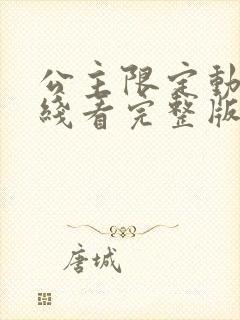 公主限定動
綫看完整版
唐城